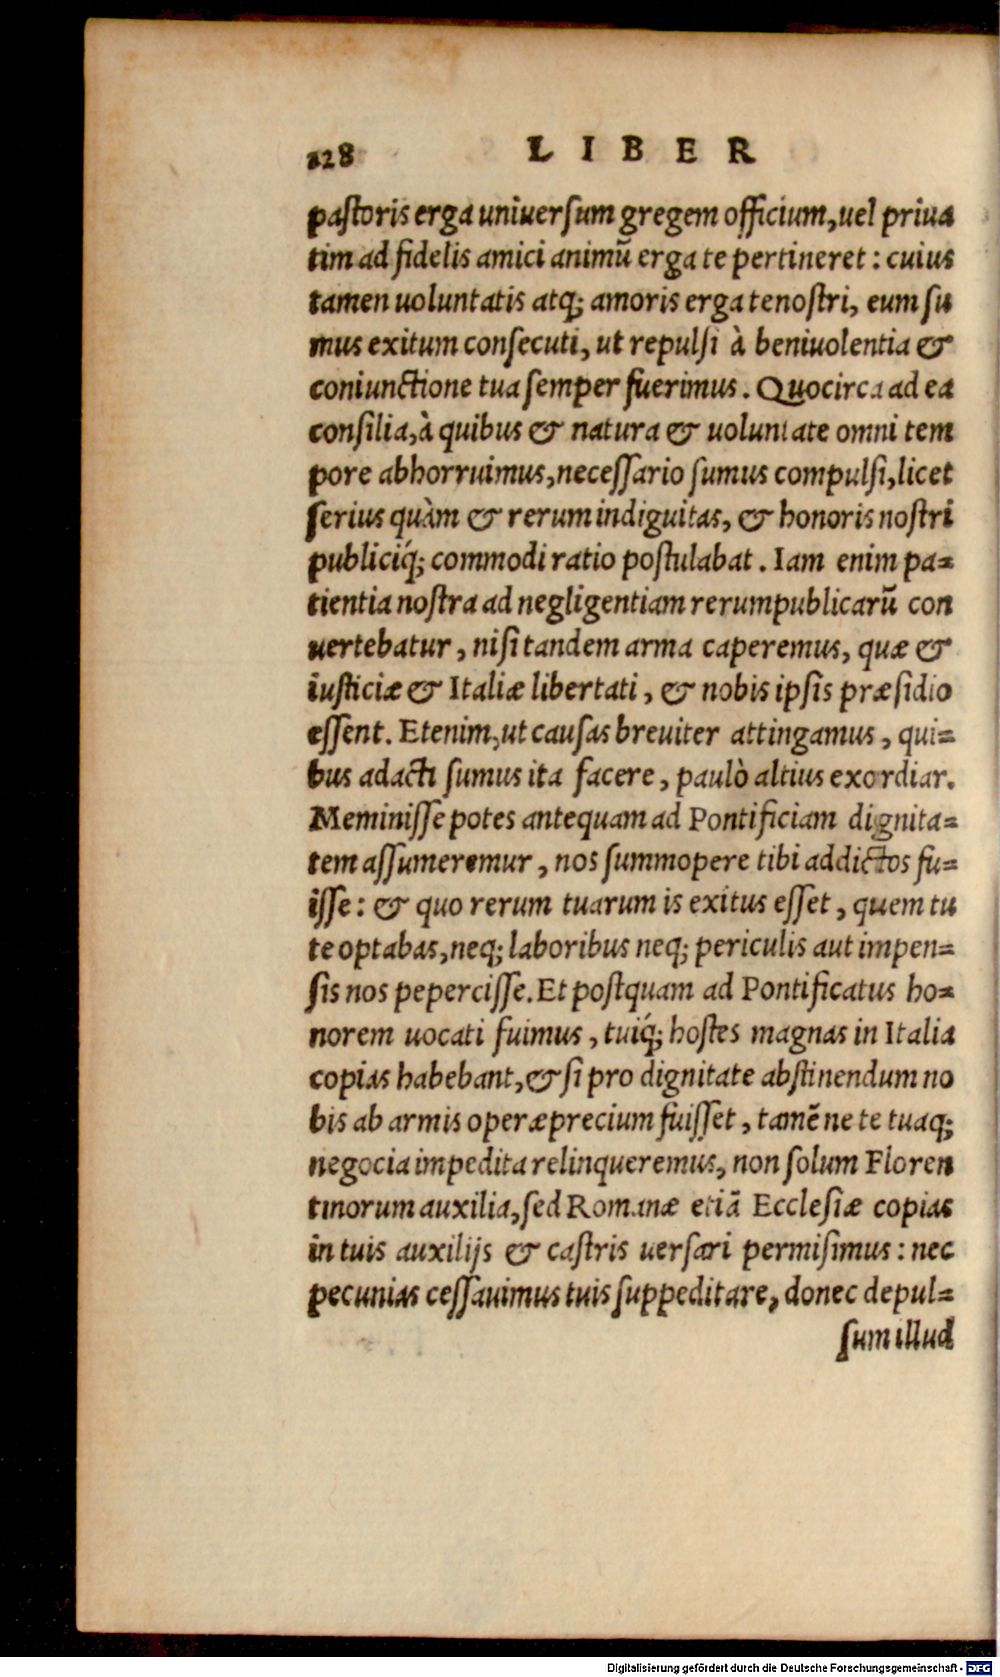 128 LIBER
pastoris erga uniuersum gregem officium, uel priua
tim ad fidelis amici animū erga te pertineret : cuius
tamen uoluntatis atq; amoris erga te nostri, eum su
mus exitum consecuti, ut repulsi à beniuolentia &
coniunctione tua semper fuerimus. Quocirca ad ea
consilia, à quibus & natura & uoluntate omni tem
pore abhorruimus, necessario sumus compulsi, licet
serius quàm & rerum indiguitas, & honoris nostri
publiciq́; commodi ratio postulabat. Iam enim pa=
tientia nostra ad negligentiam rerumpublicarū con
uertebatur, nisi tandem arma caperemus, quæ &
iusticiæ & Italiæ libertati, & nobis ipsis præsidio
essent. Etenim, ut causas breuiter attingamus, qui=
bus adacti sumus ita facere, paulò altius exordiar.
Meminisse potes antequam ad Pontificiam dignita=
tem assumeremur, nos summopere tibi addictos fu=
isse : & quo rerum tuarum is exitus esset, quem tu
te optabas, neq; laboribus neq; periculis aut impen=
sis nos pepercisse. Et postquam ad Pontificatus ho=
norem uocati fuimus, tuiq́; hostes magnas in Italia
copias habebant, & si pro dignitate abstinendum no
bis ab armis operæprecium fuisset, tamē ne te tuaq;
negocia impedita relinqueremus, non solum Floren
tinorum auxilia, sed Romanæ etiā Ecclesiæ copias
in tuis auxilijs & castris uersari permisimus : nec
pecunias cessauimus tuis suppeditare, donec depul=
sum illud
Digitalisierung gefördert durch die Deutsche Forschungsgemeinschaft - DFG